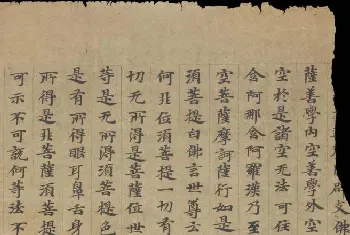 辟支佛
薩善學內空善學外空
空於是諸空无法可住
含阿那含阿羅漢乃至
空菩薩摩訶薩行如是
須菩提白佛言世尊云
何非位須菩提一切有
切无所得是菩薩位世
等是无所得須菩提色
是有所得眼耳鼻舌身
所得是非菩薩須菩提
可示不可說何等法不